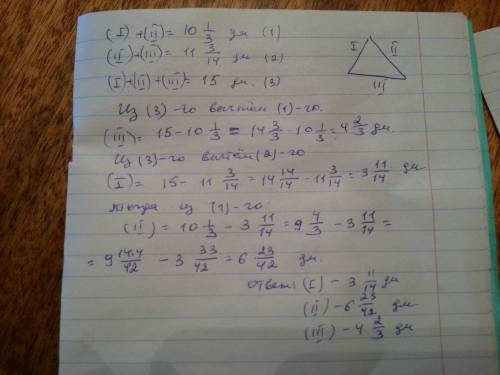 (I)+(II)= 10 1/3 дм (1)
(II)+(III)= 11 3/14 дм (2)
(I)+(II)+(III)= 15 дм (3)
I II
III
Из (3)-го вычтем (1)-го.
(III)= 15 - 10 1/3 = 14 3/3 - 10 1/3 = 4 2/3 дм.
Из (3)-го вычтем (2)-го
(I)= 15 - 11 3/14 = 14 14/14 - 11 3/14 = 3 11/14 дм
тогда из (1)-го
(II) = 10 1/3 - 3 11/14 = 9 4/3 - 3 11/14 =
= 9 14·4/42 - 3 33/42 = 6 23/42 дм.
Ответ: (I) - 3 11/14 дм
(II) - 6 23/42 дм
(III) - 4 2/3 дм